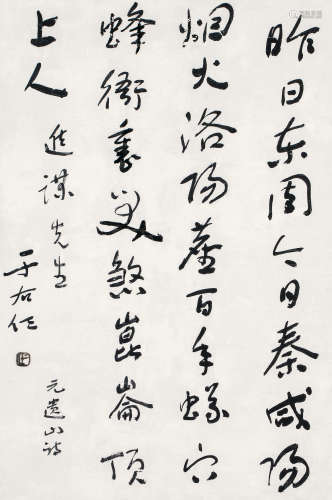 昨日东周今日秦咸阳
烟火洛阳尘百年蚁穴
蜂衙里笑煞崑崙顶
上人
进谋先生
于右任
元遗山诗